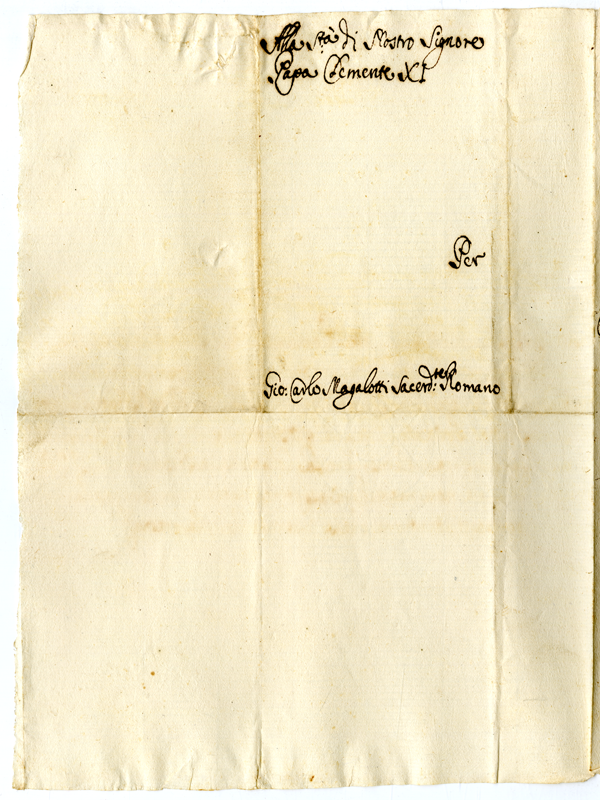 Alla S.tà di Nostro Signore
Papa Clemente XI
Per
Gio: Carlo Magalotti Sacerd:te Romano